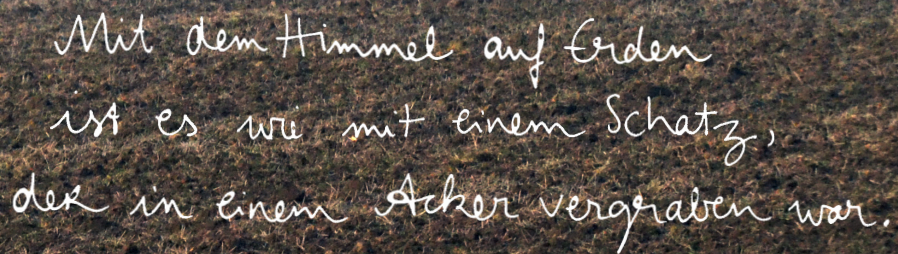 Mit dem Himmel auf Erden
ist es wie mit einem Schatz,
der in einem Acker vergraben war.